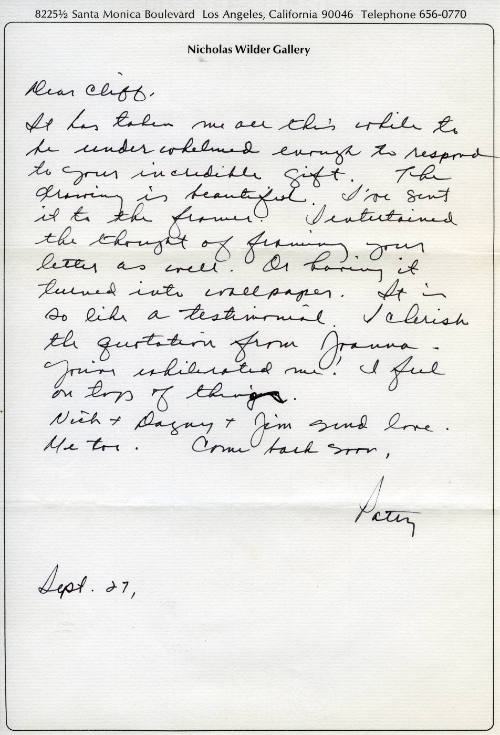 8225½ Santa Monica Boulevard Los Angeles, California 90046 Telephone 656-0770
Nicholas Wilder Gallery
Dear Cliff.
It has taken me all this while to
be underwhelmed enough to respond
to your incredible gift. The
drawing is beautiful. I've sent
it to the framer. I entertained
the thought of framing your
letter as well. Or having it
turned into wallpaper. It is
so like a testimonial. I cherish
the quotation from Joanna -
You've exhilerated me! I feel
on top of things.
Nick + Dagny + Jim send love.
Me too. Come back soon,
Patsy
Sept. 27,